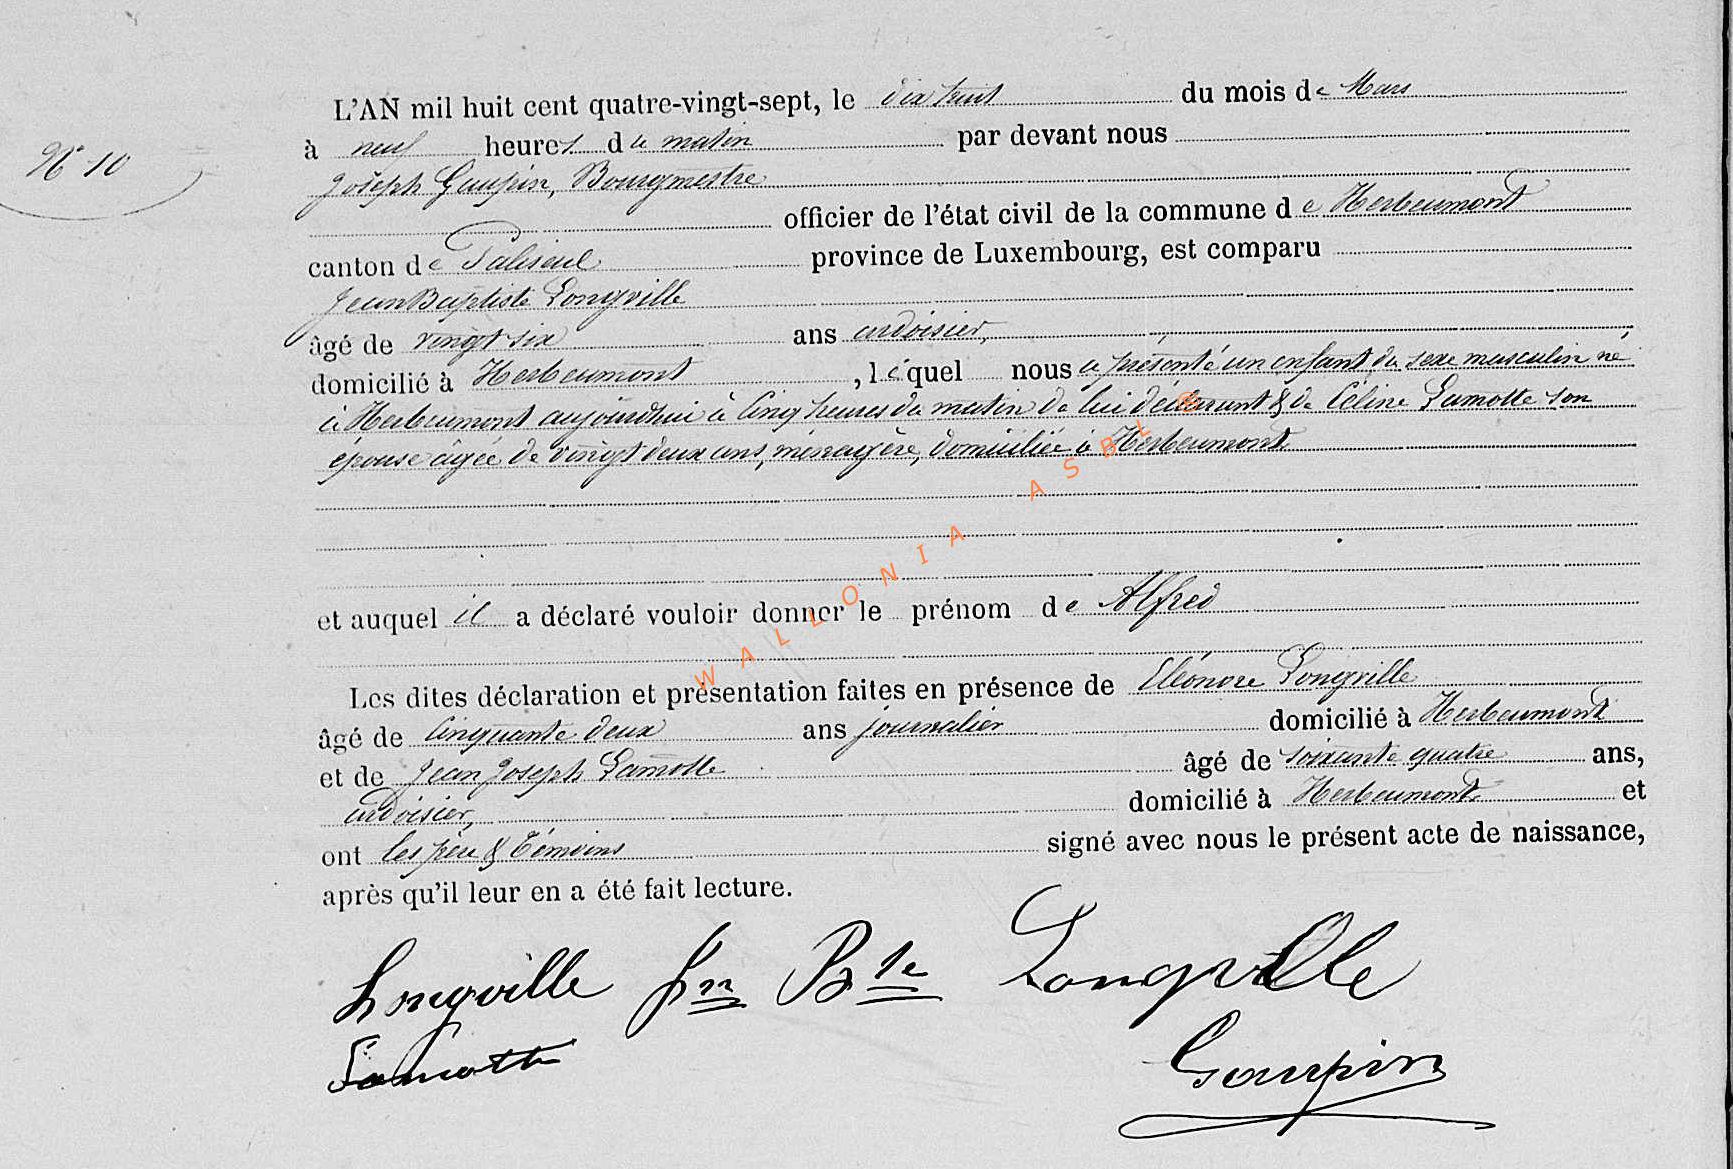 L'AN mil huit cent quatre-vingt-sept, le dix huit du mois de Mars
N° 10
à neuf heures du matin par devant nous
Joseph Gaupin, Bourgmestre
officier de l'état civil de la commune de Herbeumont
canton de Paliseul province de Luxembourg, est comparu
Jean Baptiste Longville
âgé de vingt six ans ardoisier,
domicilié à Herbeumont, lequel nous a présenté un enfant du sexe masculin né
à Herbeumont aujourdhui à cinq heures du matin de lui déclarant & de Céline Lamotte son
épouse âgée de vingt deux ans, ménagère, domiciliée à Herbeumont
WALLONIA ASBL ®
et auquel il a déclaré vouloir donner le prénom de Alfred
Les dites déclaration et présentation faites en présence de Eléonore Longville
âgé de cinquante deux ans journalier domicilié à Herbeumont
et de Jean Joseph Lamotte âgé de soixante quatre ans,
ardoisier, domicilié à Herbeumont et
ont les père & témoins signé avec nous le présent acte de naissance,
après qu'il leur en a été fait lecture.
Longville Jn Bte Longville
Lamotte Gaupin